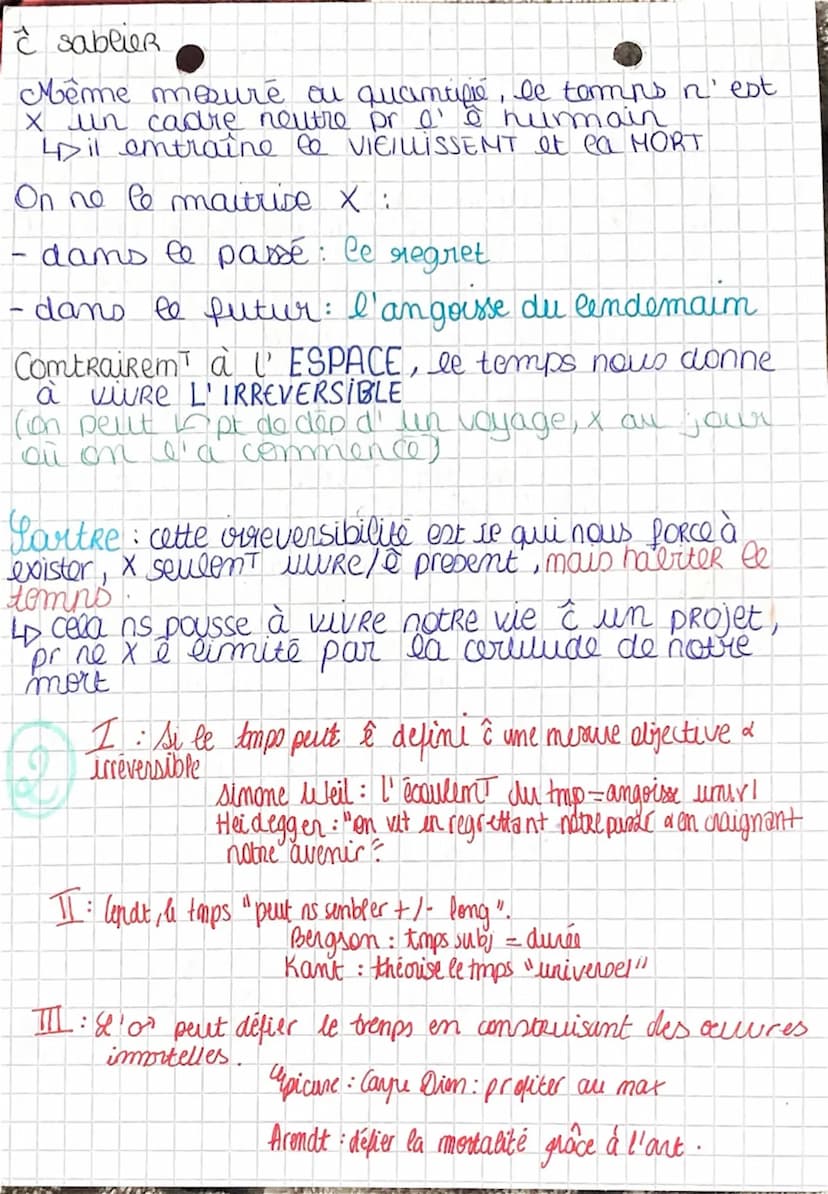 ĉ sablier
Même mesuré ou quantifié, le temps n'est
x un cadre neutre pr l' ê humain
↳ il entraîne le VIEILLISSENT et la MORT
On ne le maitrise X :
- dans le passé : le regret
- dans le futur : l'angoisse du lendemain
ContrairemT à l' ESPACE, le temps nous donne
à vivre L'IRREVERSIBLE
(on peut ↩ pt de dép d' un voyage, x au jour
où on l'a commencé)
Sartre : cette irreversibilité est ce qui nous force à
exister, x seulenT vivre/ê present, mais habiter le
temps.
↳ cela ns pousse à vivre notre vie ĉ un projet,
pr ne x ê limité par la certitude de notre
mort
2
I : Si le tmps peut ê defini ĉ une mesure objective &
irréversible
Simone Weil : l'écoulenT du tmp = angoisse
Heidegger : "on vit en regrettant notre passé & en craignant
notre avenir"
II : Cepdt, le tmps "peut ns sembler +/- long".
Bergson : tmps subj = durée
Kant : théorise le tmps "universel"
III : L' peut défier le temps en construisant des œuvres
immortelles.
Epicure : Carpe Diem : profiter au max
Arendt : défier la mortalité grâce à l'art.